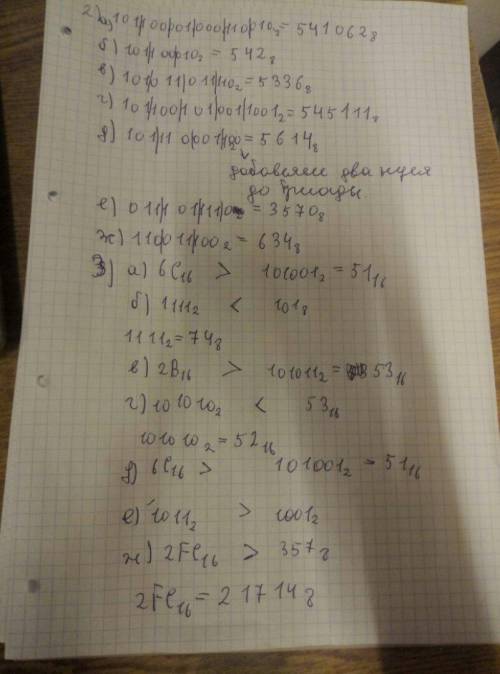 2) а) 101|100|001|000|110|010₂ = 541062₈
б) 101|100|010₂ = 542₈
в) 101011011110₂ = 5336₈
г) 101|100|101|001|001|001₂ = 545111₈
д) 101|110|001|100₂ = 5614₈
добавляем два нуля
до триады.
е) 011|101|111|0₂ = 3570₈
ж) 110011100₂ = 634₈
3) а) 6C₁₆ > 101001₂ = 51₁₆
б) 1111₂ < 101₈
1111₂ = 74₈
в) 2B₁₆ > 101011₂ = 53₁₆
г) 101010₂ < 53₁₆
101010₂ = 52₁₆
д) 6C₁₆ > 101001₂ = 51₁₆
е) 1011₂ > 1001₂
ж) 2FC₁₆ > 357₈
2FC₁₆ = 21714₈